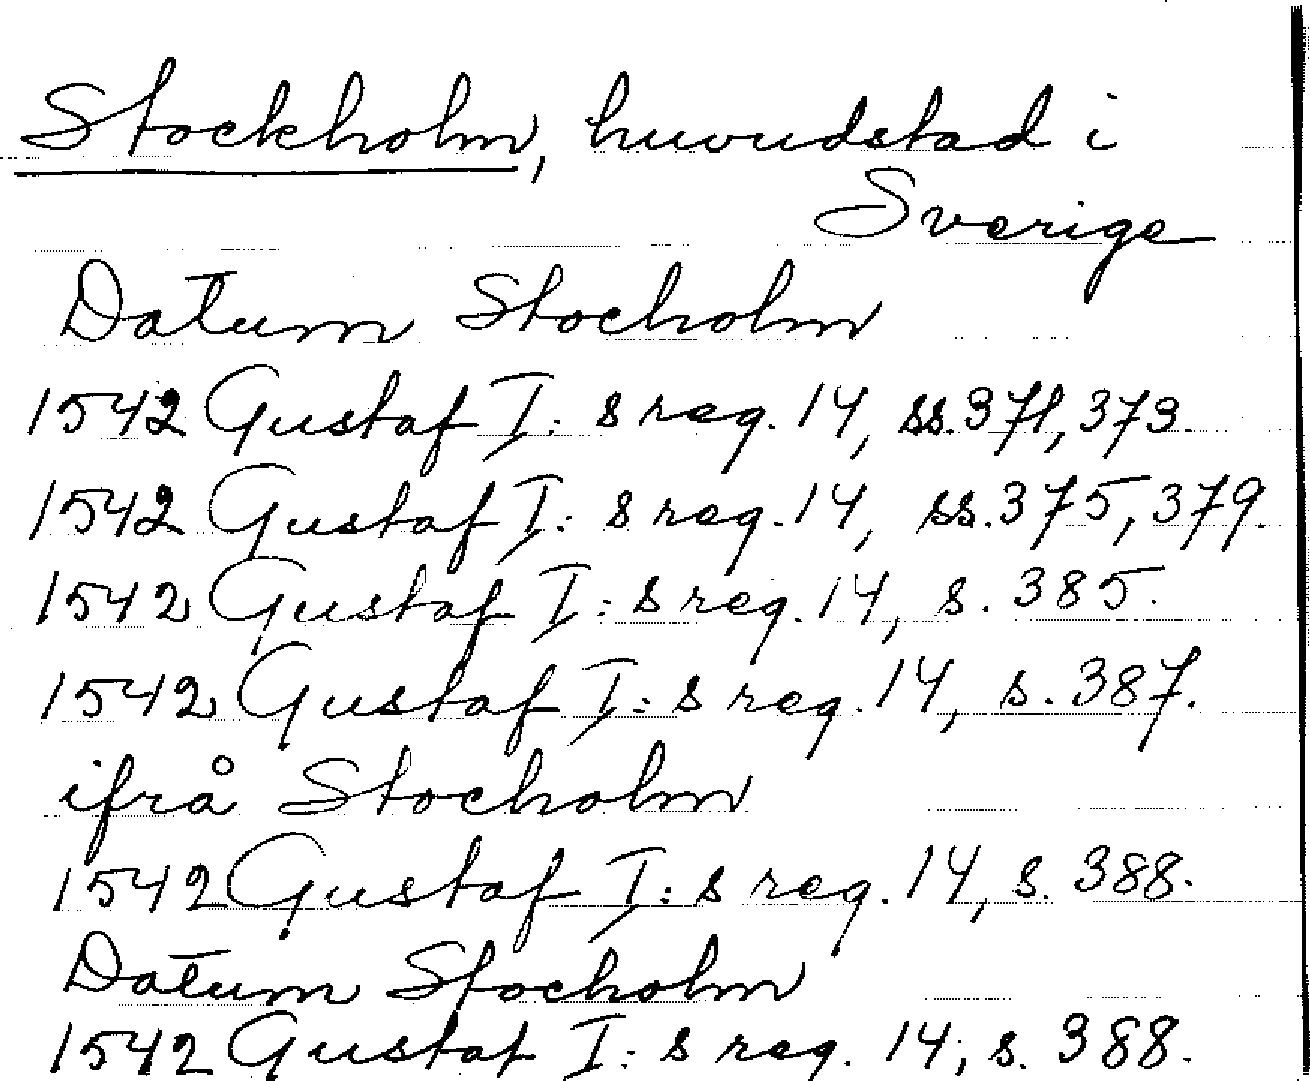 Stockholm, huvudstad i
Sverige
Datum Stocholm
1542 Gustaf I:s reg. 14, ss. 371, 373.
1542 Gustaf I:s reg. 14, ss. 375, 379.
1542 Gustaf I:s reg. 14, s. 385.
1542 Gustaf I:s reg. 14, s. 387.
ifrå Stocholm
1542 Gustaf I:s reg. 14, s. 388.
Datum Stocholm
1542 Gustaf I:s reg. 14, s. 388.